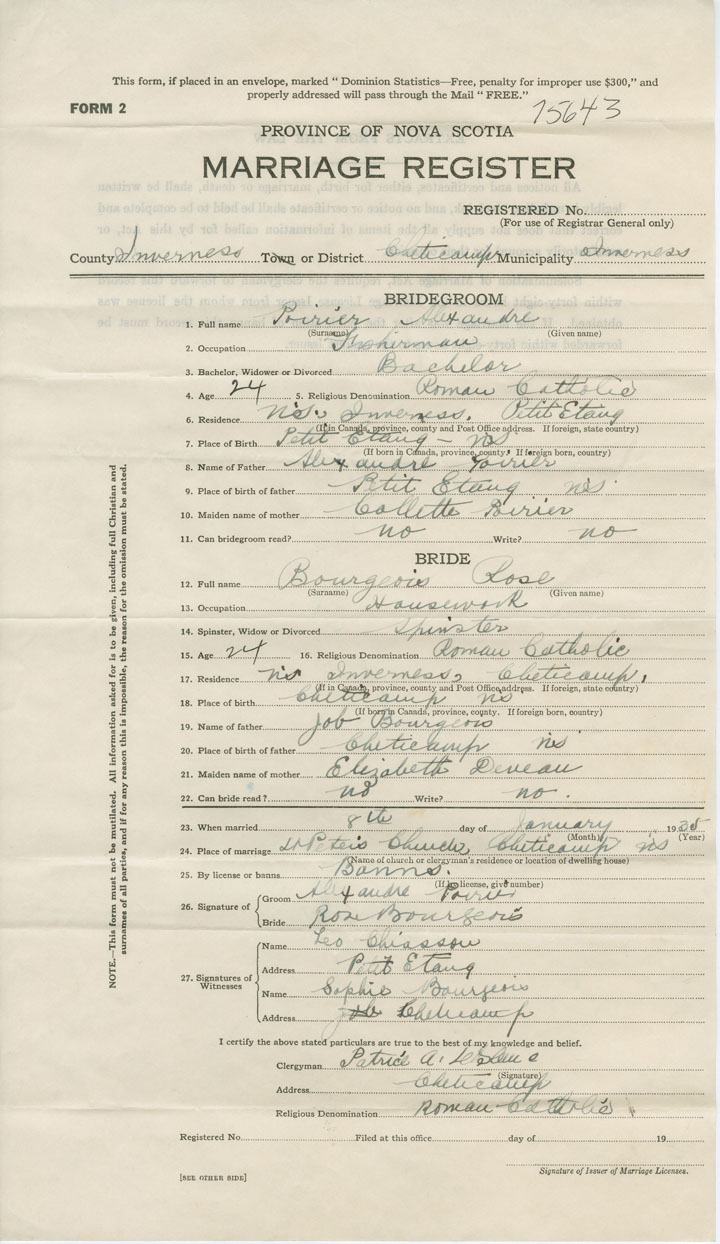 This form, if placed in an envelope, marked " Dominion Statistics—Free, penalty for improper use $300," and
properly addressed will pass through the Mail " FREE."
FORM 2
75643
PROVINCE OF NOVA SCOTIA
MARRIAGE REGISTER
REGISTERED No.
(For use of Registrar General only)
County Inverness Town or District Cheticamp Municipality Inverness
BRIDEGROOM
1. Full name Poirier Alexandre
(Surname) (Given name)
2. Occupation Fisherman
3. Bachelor, Widower or Divorced Bachelor
4. Age 24 5. Religious Denomination Roman Catholic
6. Residence N.S. Inverness, Petit Etang
(If in Canada, province, county and Post Office address. If foreign, state country)
7. Place of Birth Petit Etang - NS
(If born in Canada, province, county. If foreign born, country)
8. Name of Father Alexandre Poirier
9. Place of birth of father Petit Etang NS
10. Maiden name of mother Collette Poirier
11. Can bridegroom read? no Write? no
BRIDE
12. Full name Bourgeois Rose
(Surname) (Given name)
13. Occupation Housework
14. Spinster, Widow or Divorced Spinster
15. Age 24 16. Religious Denomination Roman Catholic
17. Residence NS Inverness, Cheticamp,
(If in Canada, province, county and Post Office address. If foreign, state country)
18. Place of birth Cheticamp NS
(If born in Canada, province, county. If foreign born, country)
19. Name of father Job Bourgeois
20. Place of birth of father Cheticamp NS
21. Maiden name of mother Elizabeth Deveau
22. Can bride read? no Write? no.
23. When married 8th day of January 1935
(Month) (Year)
24. Place of marriage St Peter's Church, Cheticamp NS
(Name of church or clergyman's residence or location of dwelling house)
25. By license or banns Banns.
(If by license, give number)
26. Signature of
Groom Alexandre Poirier
Bride Rose Bourgeois
27. Signatures of Witnesses
Name Leo Chiasson
Address Petit Etang
Name Sophie Bourgeois
Address Cheticamp
I certify the above stated particulars are true to the best of my knowledge and belief.
Clergyman Patrice A. LeBlanc
(Signature)
Address Cheticamp
Religious Denomination Roman Catholic
Registered No. Filed at this office day of 19
Signature of Issuer of Marriage Licenses.
[SEE OTHER SIDE]
NOTE.—This form must not be mutilated. All information asked for is to be given, including full Christian and
surnames of all parties, and if for any reason this is impossible, the reason for the omission must be stated.